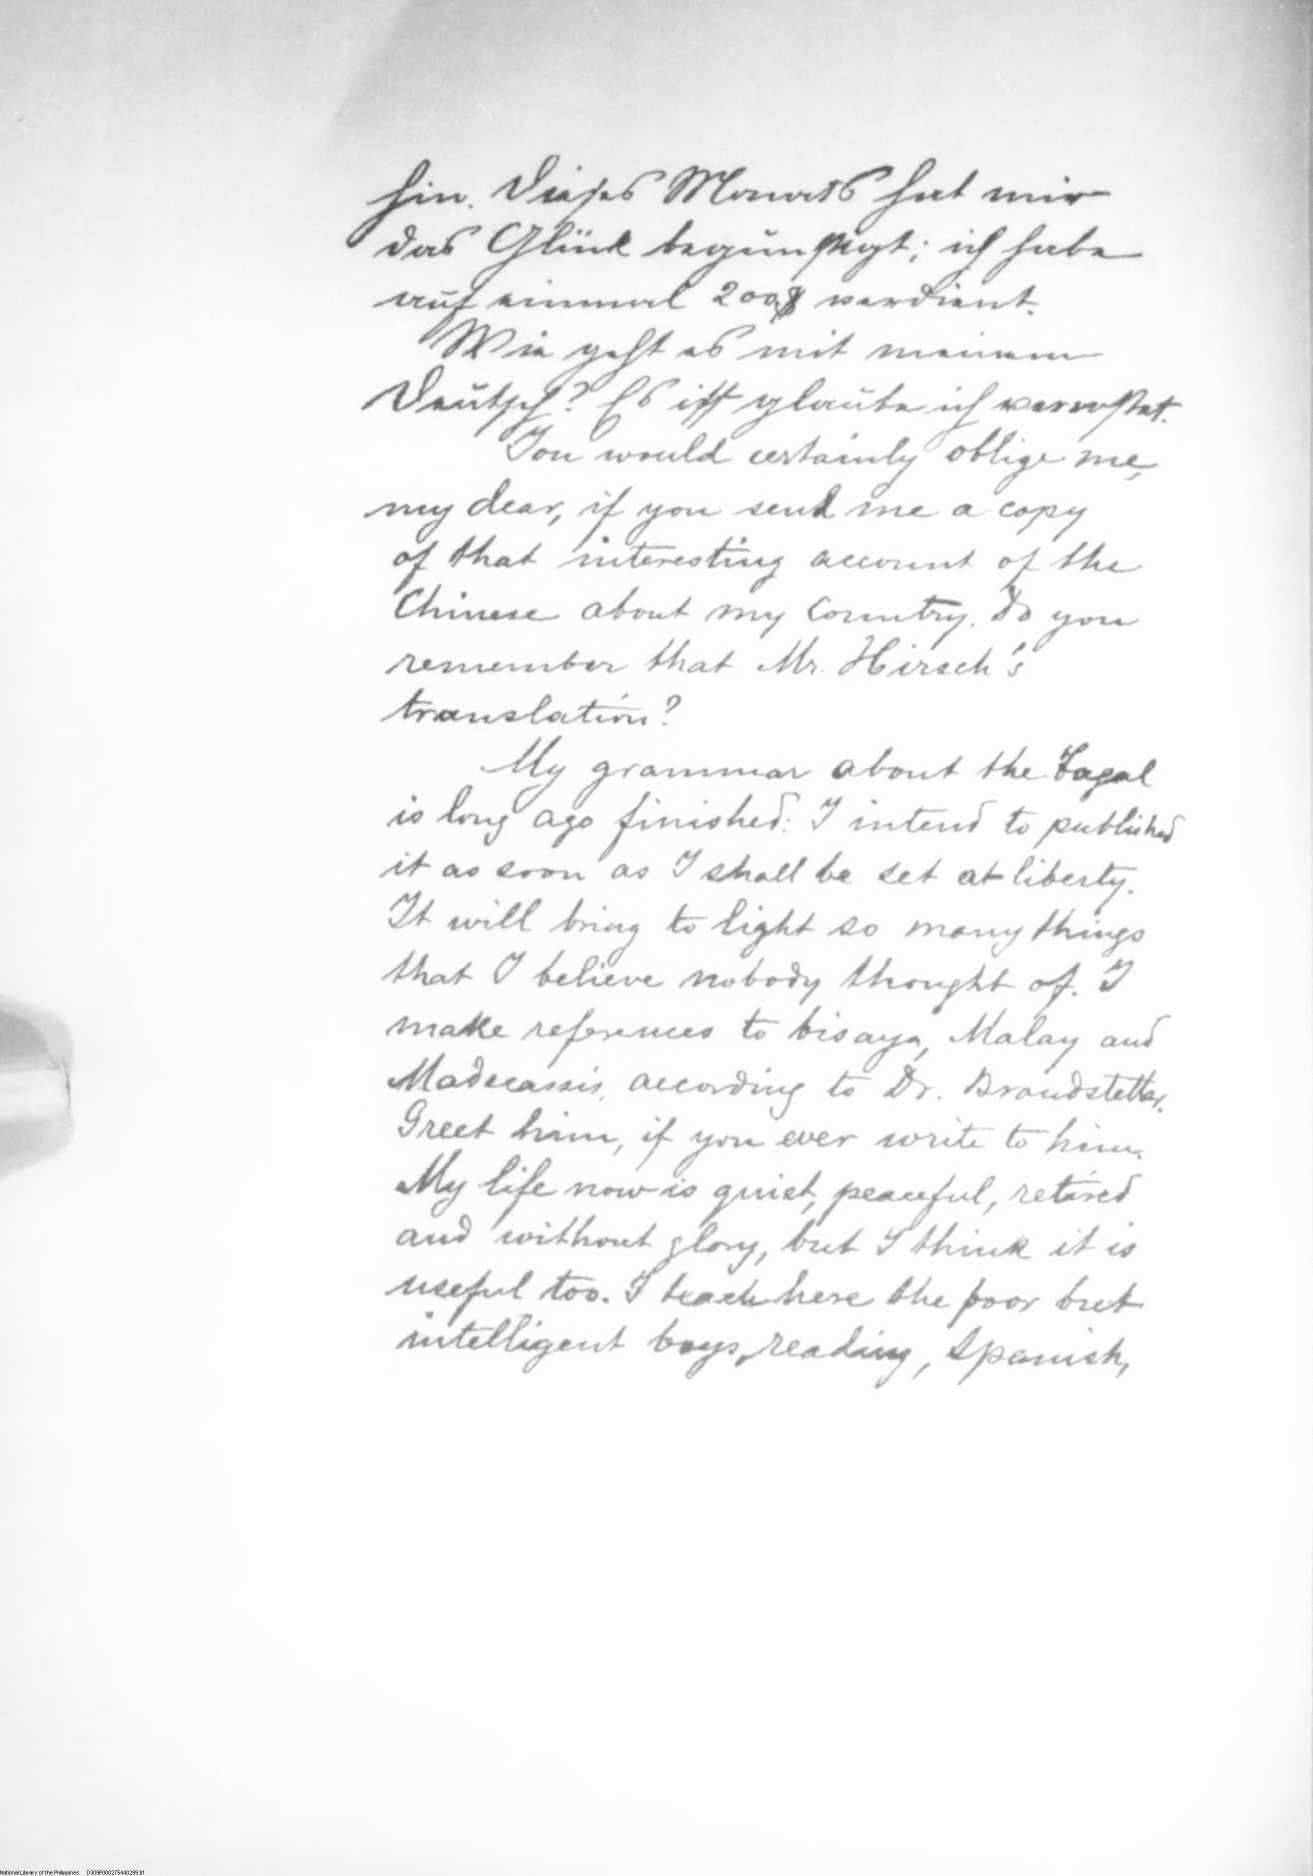 hin. Dieses Monats hat mir
das Glück begünstigt; ich habe
auf einmal 200$ verdient.
Wie geht es mit meinem
Deutsch? Es ist glaube ich verrostet.
You would certainly oblige me,
my dear, if you send me a copy
of that interesting account of the
Chinese about my Country. Do you
remember that Mr. Hirsch's
translation?
My grammar about the Tagal
is long ago finished: I intend to published
it as soon as I shall be set at liberty.
It will bring to light so many things
that I believe nobody thought of. I
make references to bisaya, Malay and
Madecassis, according to Dr. Brandstetter.
Greet him, if you ever write to him.
My life now is quiet, peaceful, retired
and without glory, but I think it is
useful too. I teach here the poor but
intelligent boys, reading, Spanish,
National Library of the Philippines D309P000275440299.tif